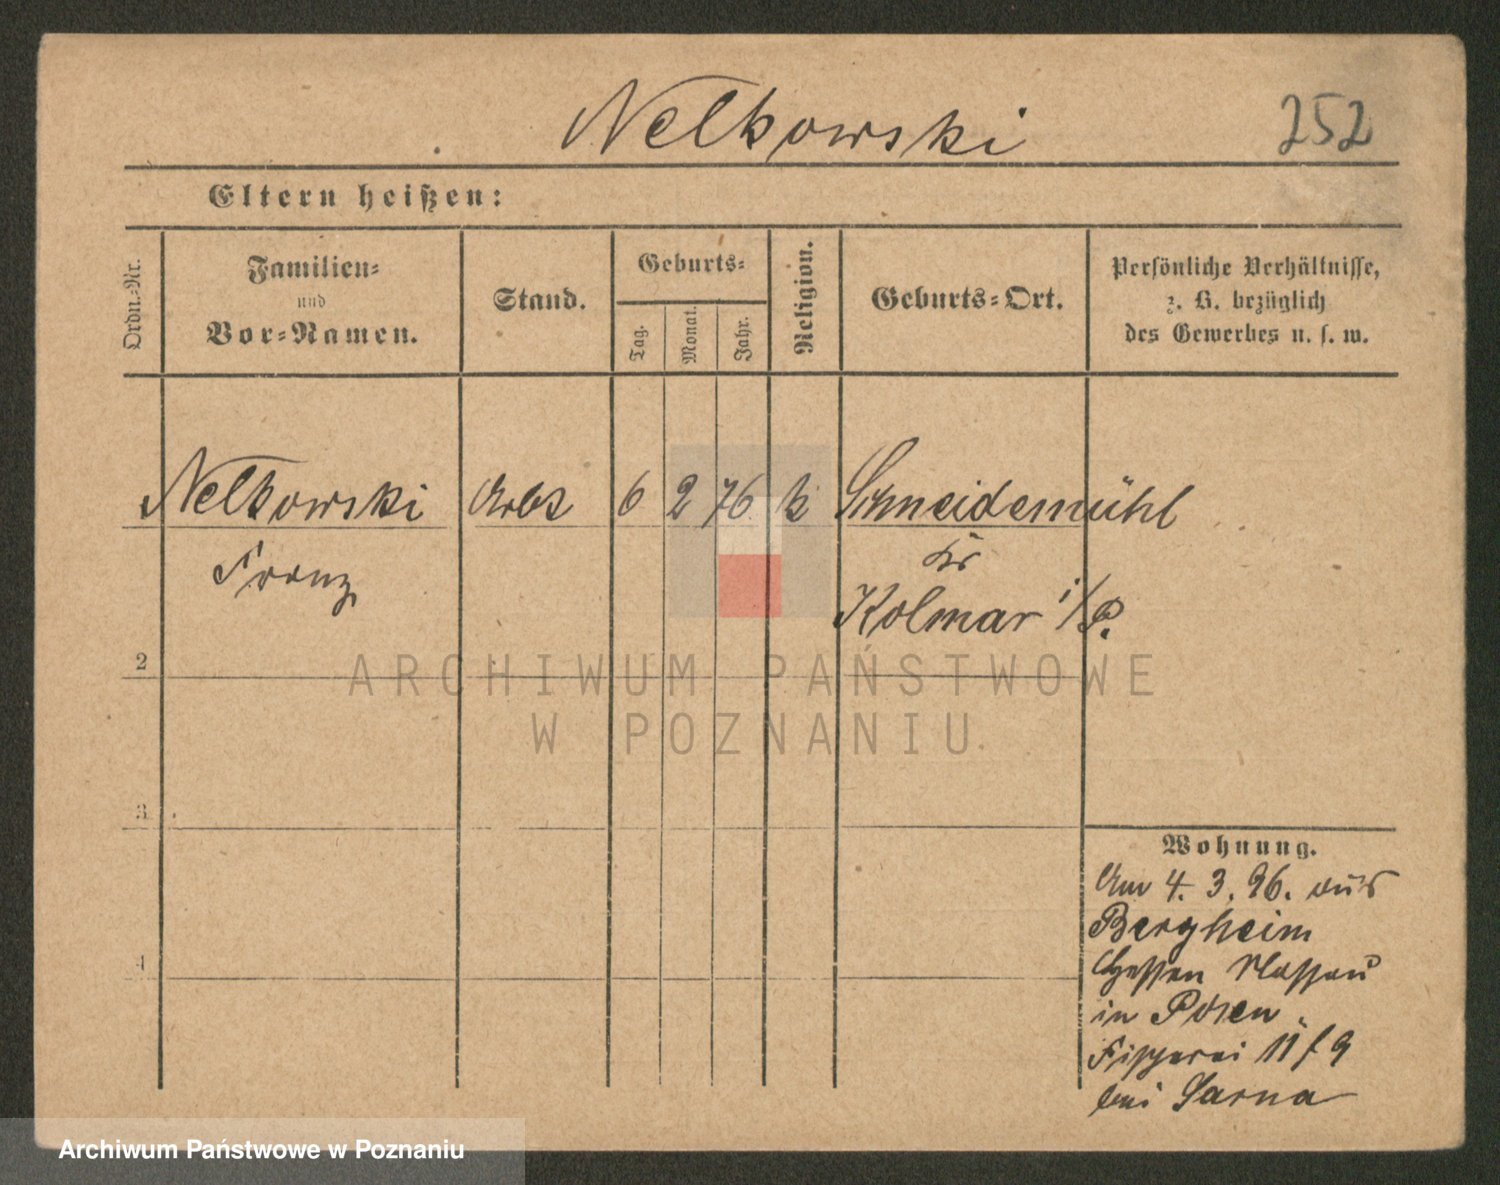 Nelkowski
252
Eltern heißen:
Ordn.-Nr.
Familien-
und
Vor-Namen.
Stand.
Geburts-
Tag.
Monat.
Jahr.
Religion.
Geburts-Ort.
Persönliche Verhältnisse,
z. B. bezüglich
des Gewerbes u. s. w.
Nelkowski Arbt 6 2 76 k Schneidemühl
Franz
Kr
Kolmar i/P.
2
ARCHIWUM PAŃSTWOWE
W POZNANIU
3
4
Wohnung.
Am 4. 3. 96. aus
Bergheim
Hessen Nassau
in Posen
Fischerei 11 f 9
bei Sarna
Archiwum Państwowe w Poznaniu